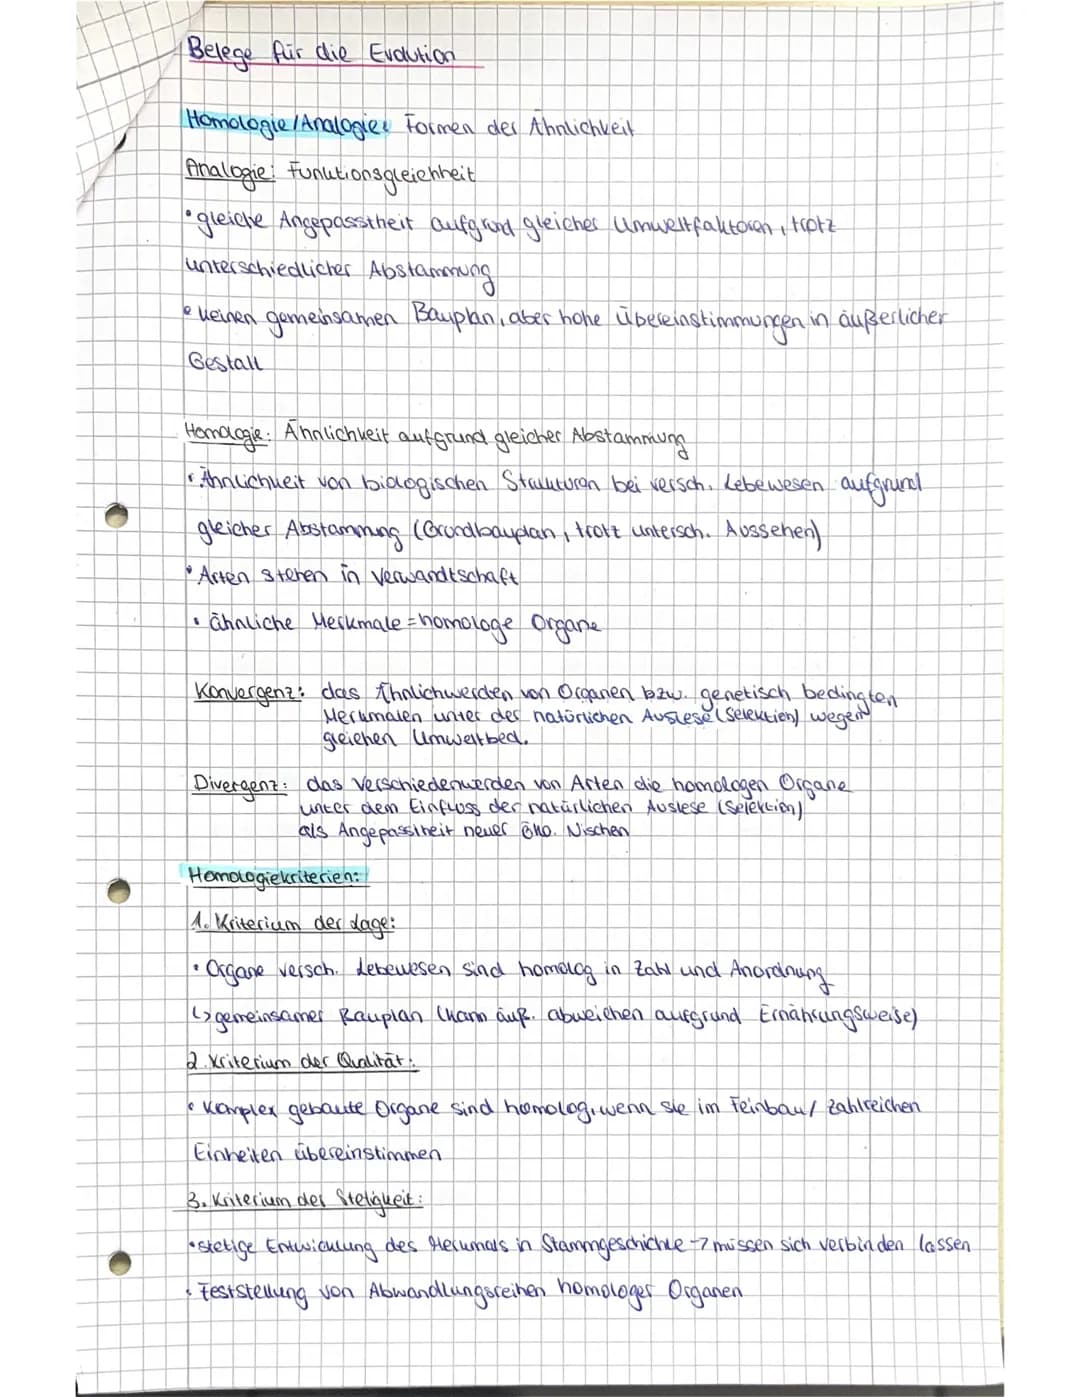 Belege für die Evolution
Homologie/Analogie: Formen der Ähnlichkeit
Analogie: Funktionsgleichheit
• gleiche Angepasstheit aufgrund gleicher Umweltfaktoren, trotz
unterschiedlicher Abstammung
• keinen gemeinsamen Bauplan, aber hohe Übereinstimmungen in äußerlicher
Gestalt
Homologie: Ähnlichkeit aufgrund gleicher Abstammung
• Ähnlichkeit von biologischen Strukturen bei versch. Lebewesen aufgrund
gleicher Abstammung (Grundbauplan, trotz untersch. Aussehen)
• Arten stehen in Verwandtschaft
• ähnliche Merkmale = homologe Organe
Konvergenz: das Ähnlichwerden von Organen bzw. genetisch bedingten
Merkmalen unter der natürlichen Auslese (Selektion) wegen
gleichen Umweltbed.
Divergenz: das Verschiedenwerden von Arten die homologen Organe
unter dem Einfluss der natürlichen Auslese (Selektion)
als Angepasstheit neuer öko. Nischen
Homologiekriterien:
1. Kriterium der Lage:
• Organe versch. Lebewesen sind homolog in Zahl und Anordnung
↳ gemeinsamer Bauplan (kann äuß. abweichen aufgrund Ernährungsweise)
2. Kriterium der Qualität:
• Komplex gebaute Organe sind homolog, wenn sie im Feinbau/ zahlreichen
Einheiten übereinstimmen
3. Kriterium der Stetigkeit:
• stetige Entwicklung des Merkmals in Stammgeschichte → müssen sich verbinden lassen
• Feststellung von Abwandlungsreihen homologer Organen